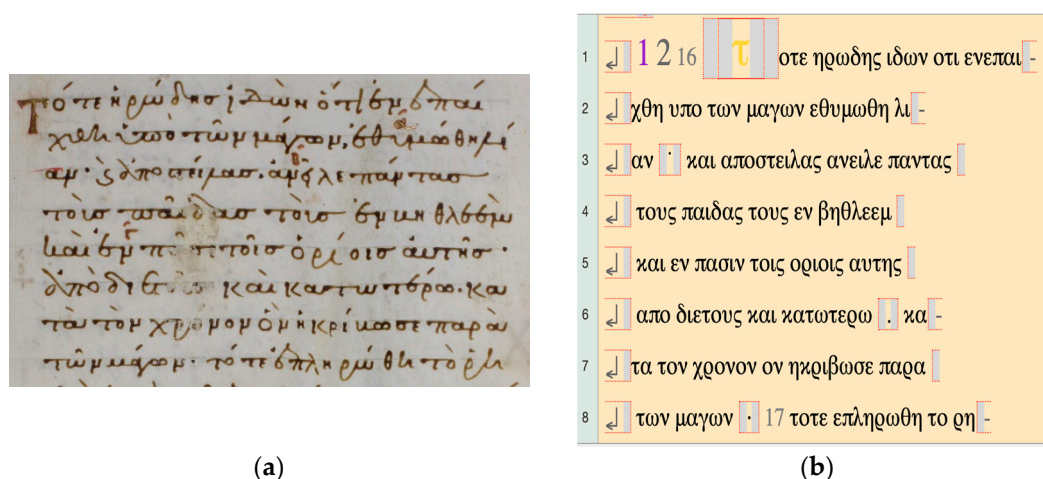 Τότε ἡρώδησ ἰδὼν ὅτι ἐνεπαί
χθη ὑπὸ τῶν μάγων, ἐθυμώθη λί
αν · ϗ ἀποστείλασ · ἀνεῖλε πάντασ
τοὶσ παῖδασ τοὶσ ἐν βηθλεὲμ
καὶ ἐν τοῖσ ὁρίοισ αὐτῆσ ·
ἀπὸ καὶ κατωτέρω · κα
τὰ τὸν χρόνον ὃν ἠκρίβωσε παρὰ
τῶν μάγων · τότε ἐπληρώθη τὸ ῥη
(a)
1 ↲ 1 2 16 τοτε ηρωδης ιδων οτι ενεπαι-
2 ↲ χθη υπο των μαγων εθυμωθη λι-
3 ↲ αν · και αποστειλας ανειλε παντας
4 ↲ τους παιδας τους εν βηθλεεμ
5 ↲ και εν πασιν τοις οριοις αυτης
6 ↲ απο διετους και κατωτερω . κα-
7 ↲ τα τον χρονον ον ηκριβωσε παρα
8 ↲ των μαγων · 17 τοτε επληρωθη το ρη-
(b)